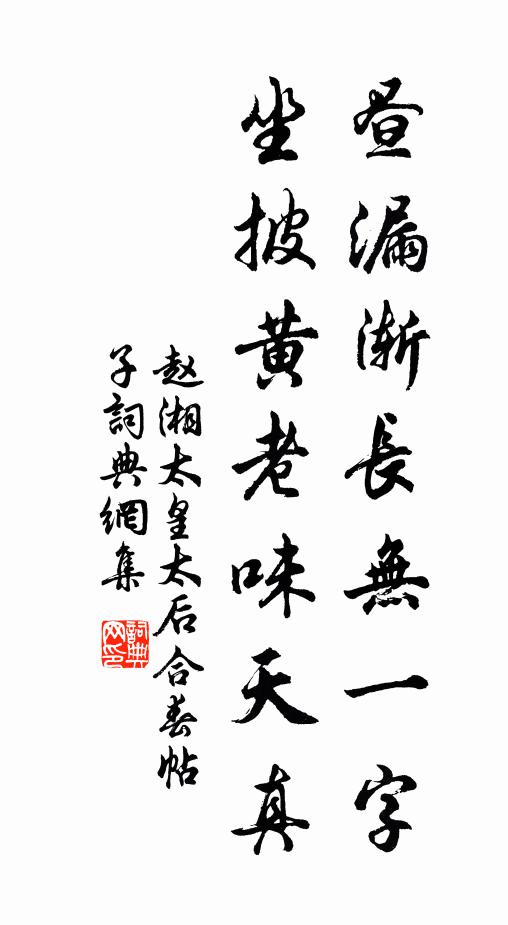 昼漏漸長無一字
坐披黄老味天真
赵湘太皇太后合春帖
子詞典網集
詞典网印